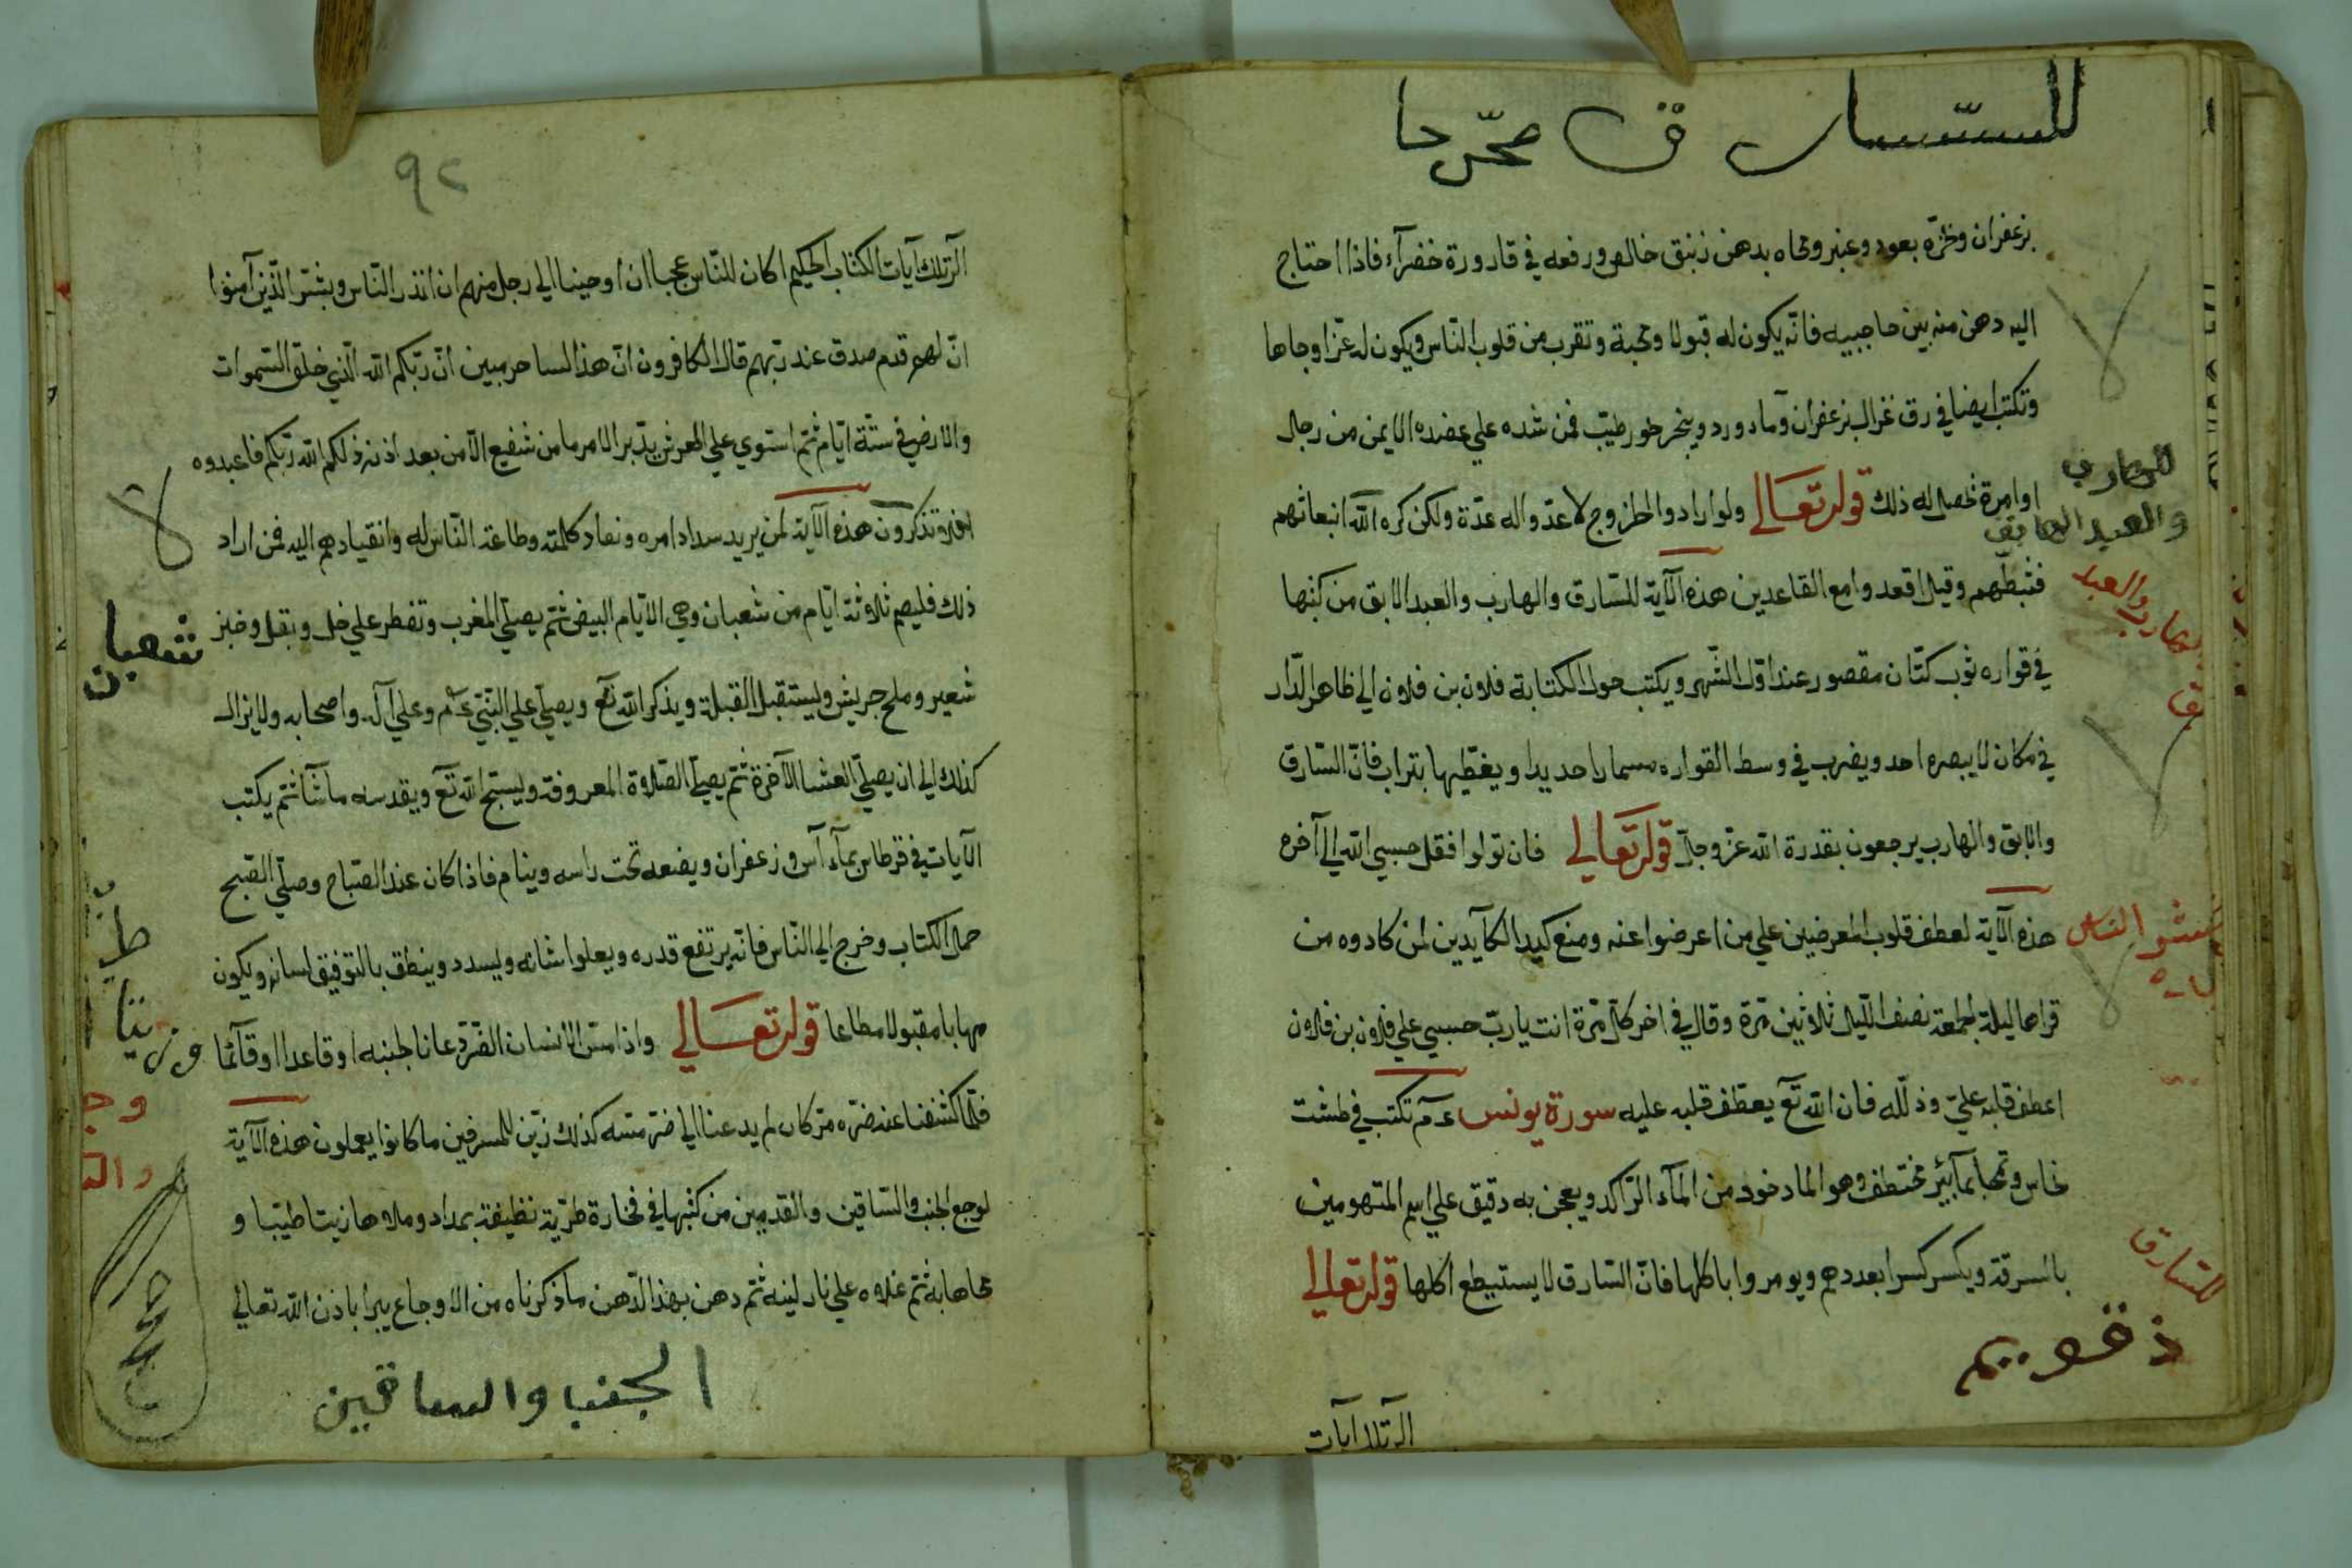 للسارق مجرحا
بزعفران وبخره بعود وعنبر ومحاه بدهن زنبق خالص ورفعه في قارورة خضرآء فاذا احتاج
اليه دهن منه بين حاجبيه فانّه يكون له قبولا ومحبة وتقرب من قلوب النّاس ويكون له عزّا وجاها
وتكتب ايضا في رق غزال بزعفران وماء ورد ويبخر طيّب فمن شده علي عضده الايمن من رجال
اوامرة تحصل له ذلك قوله تعالي ولو ارادوا الخروج لاعدّوا له عدّة ولكن كره الله انبعاثهم
فثبطّهم وقيل اقعدوا مع القاعدين هذه الآية للسّارق والهارب والعبد الابق من كتبها
في قواره ثوب كتّان مقصور عند اوّل الشّهر ويكتب حول الكتابة فلان بن فلان الي ظاهر الدّار
في مكان لا يبصره احد ويضرب في وسط القواره مسمارا حديدا ويغطّيها بتراب فانّ السّارق
والابق والهارب يرجعون بقدرة الله عزّ وجلّ قوله تعالي فان تولوا فقل حسبي الله الي آخره
هذه الآية لعطف قلوب المعرضين علي من اعرضوا عنه ومنع كيد الكآيدين لمن كادوه من
قراها ليلة الجمعة نصف اللّيل ثلاثين مرّة وقال في اخر كلّ مرّة انت ياربّ حسبي علي فلان بن فلان
اعطف قلبه عليّ وذلّله فان الله تع يعطف قلبه عليه سورة يونس ع م تكتب في طشت
نحاس وتمحا بمآ بئر مختطف وهو الماخوذ من المآء الرّاكد ويعجن به دقيق علي اسم المتهومين
بالسرقة ويكسر كسرا بعددهم ويومروا باكلها فانّ السّارق لا يستيطع اكلها قوله تعالي
للهارب
والعبد الهابق
هارب والعبد
ق
النّاس
للسّارق
الر تلك آيات
٩٢
الر تلك آيات الكتاب الحكيم اكان للنّاس عجبا ان اوحينا الي رجل منهم ان انذر النّاس وبشّر الّذين آمنوا
انّ لهم قدم صدق عند ربّهم قال الكافرون انّ هذا لساحر مبين انّ ربّكم الله الّذي خلق السّموات
والارض في ستّة ايّام ثمّ استوي علي العرش يدّبر الامر ما من شفيع الّا من بعد اذنه ذلكم الله ربّكم فاعبدوه
افلا تذكرون هذه الآية لمن يريد سداد امره ونفاد كلمته وطاعة النّاس له وانقيادهم اليه فمن اراد
ذلك فليصم ثلاثة ايّام من شعبان وهي الايّام البيض ثمّ يصلّي المغرب وتفطر علي خل وبقل وخبز
شعير وملح جريش وليستقبل القبلة ويذكر الله تع ويصلّي علي النّبيّ ع م وعلي آله واصحابه ولا يزال
كذلك الي ان يصلّي العشا الآخرة ثمّ يصلّي الصّلاة المعروفة وليسبّح الله تع ويقدسه ما شآ ثمّ يكتب
الآيات في قرطاس بمآء آس وزعفران ويضعه تحت راسه وينام فاذا كان عند الصّباح وصلّي الصّبح
حمل الكتاب وخرج الي النّاس فانّه يرتفع قدره ويعلوا شانه ويسدد وينطق بالتوفيق لسانه ويكون
مهابا مقبولا مطاعا قوله تعالي واذا مسّ الانسان الضّرّ دعانا لجنبه او قاعدا او قآئما
فلمّا كشفنا عنه ضرّه مرّ كان لم يدعنا الي ضرّ مسّه كذلك زيّن للمسرفين ما كانوا يعملون هذه الآية
لوجع الجنب والسّاقين والقدمين من كتبها في فخارة طريّة نظيفة بمداد وملاها زيتا طيّبا و
محاها به ثمّ غلاه علي نار لينه ثمّ دهن بهذا الدّهن ما ذكرناه من الاوجاع يبرا باذن الله تعالي
شعبان
الجنب والساقين